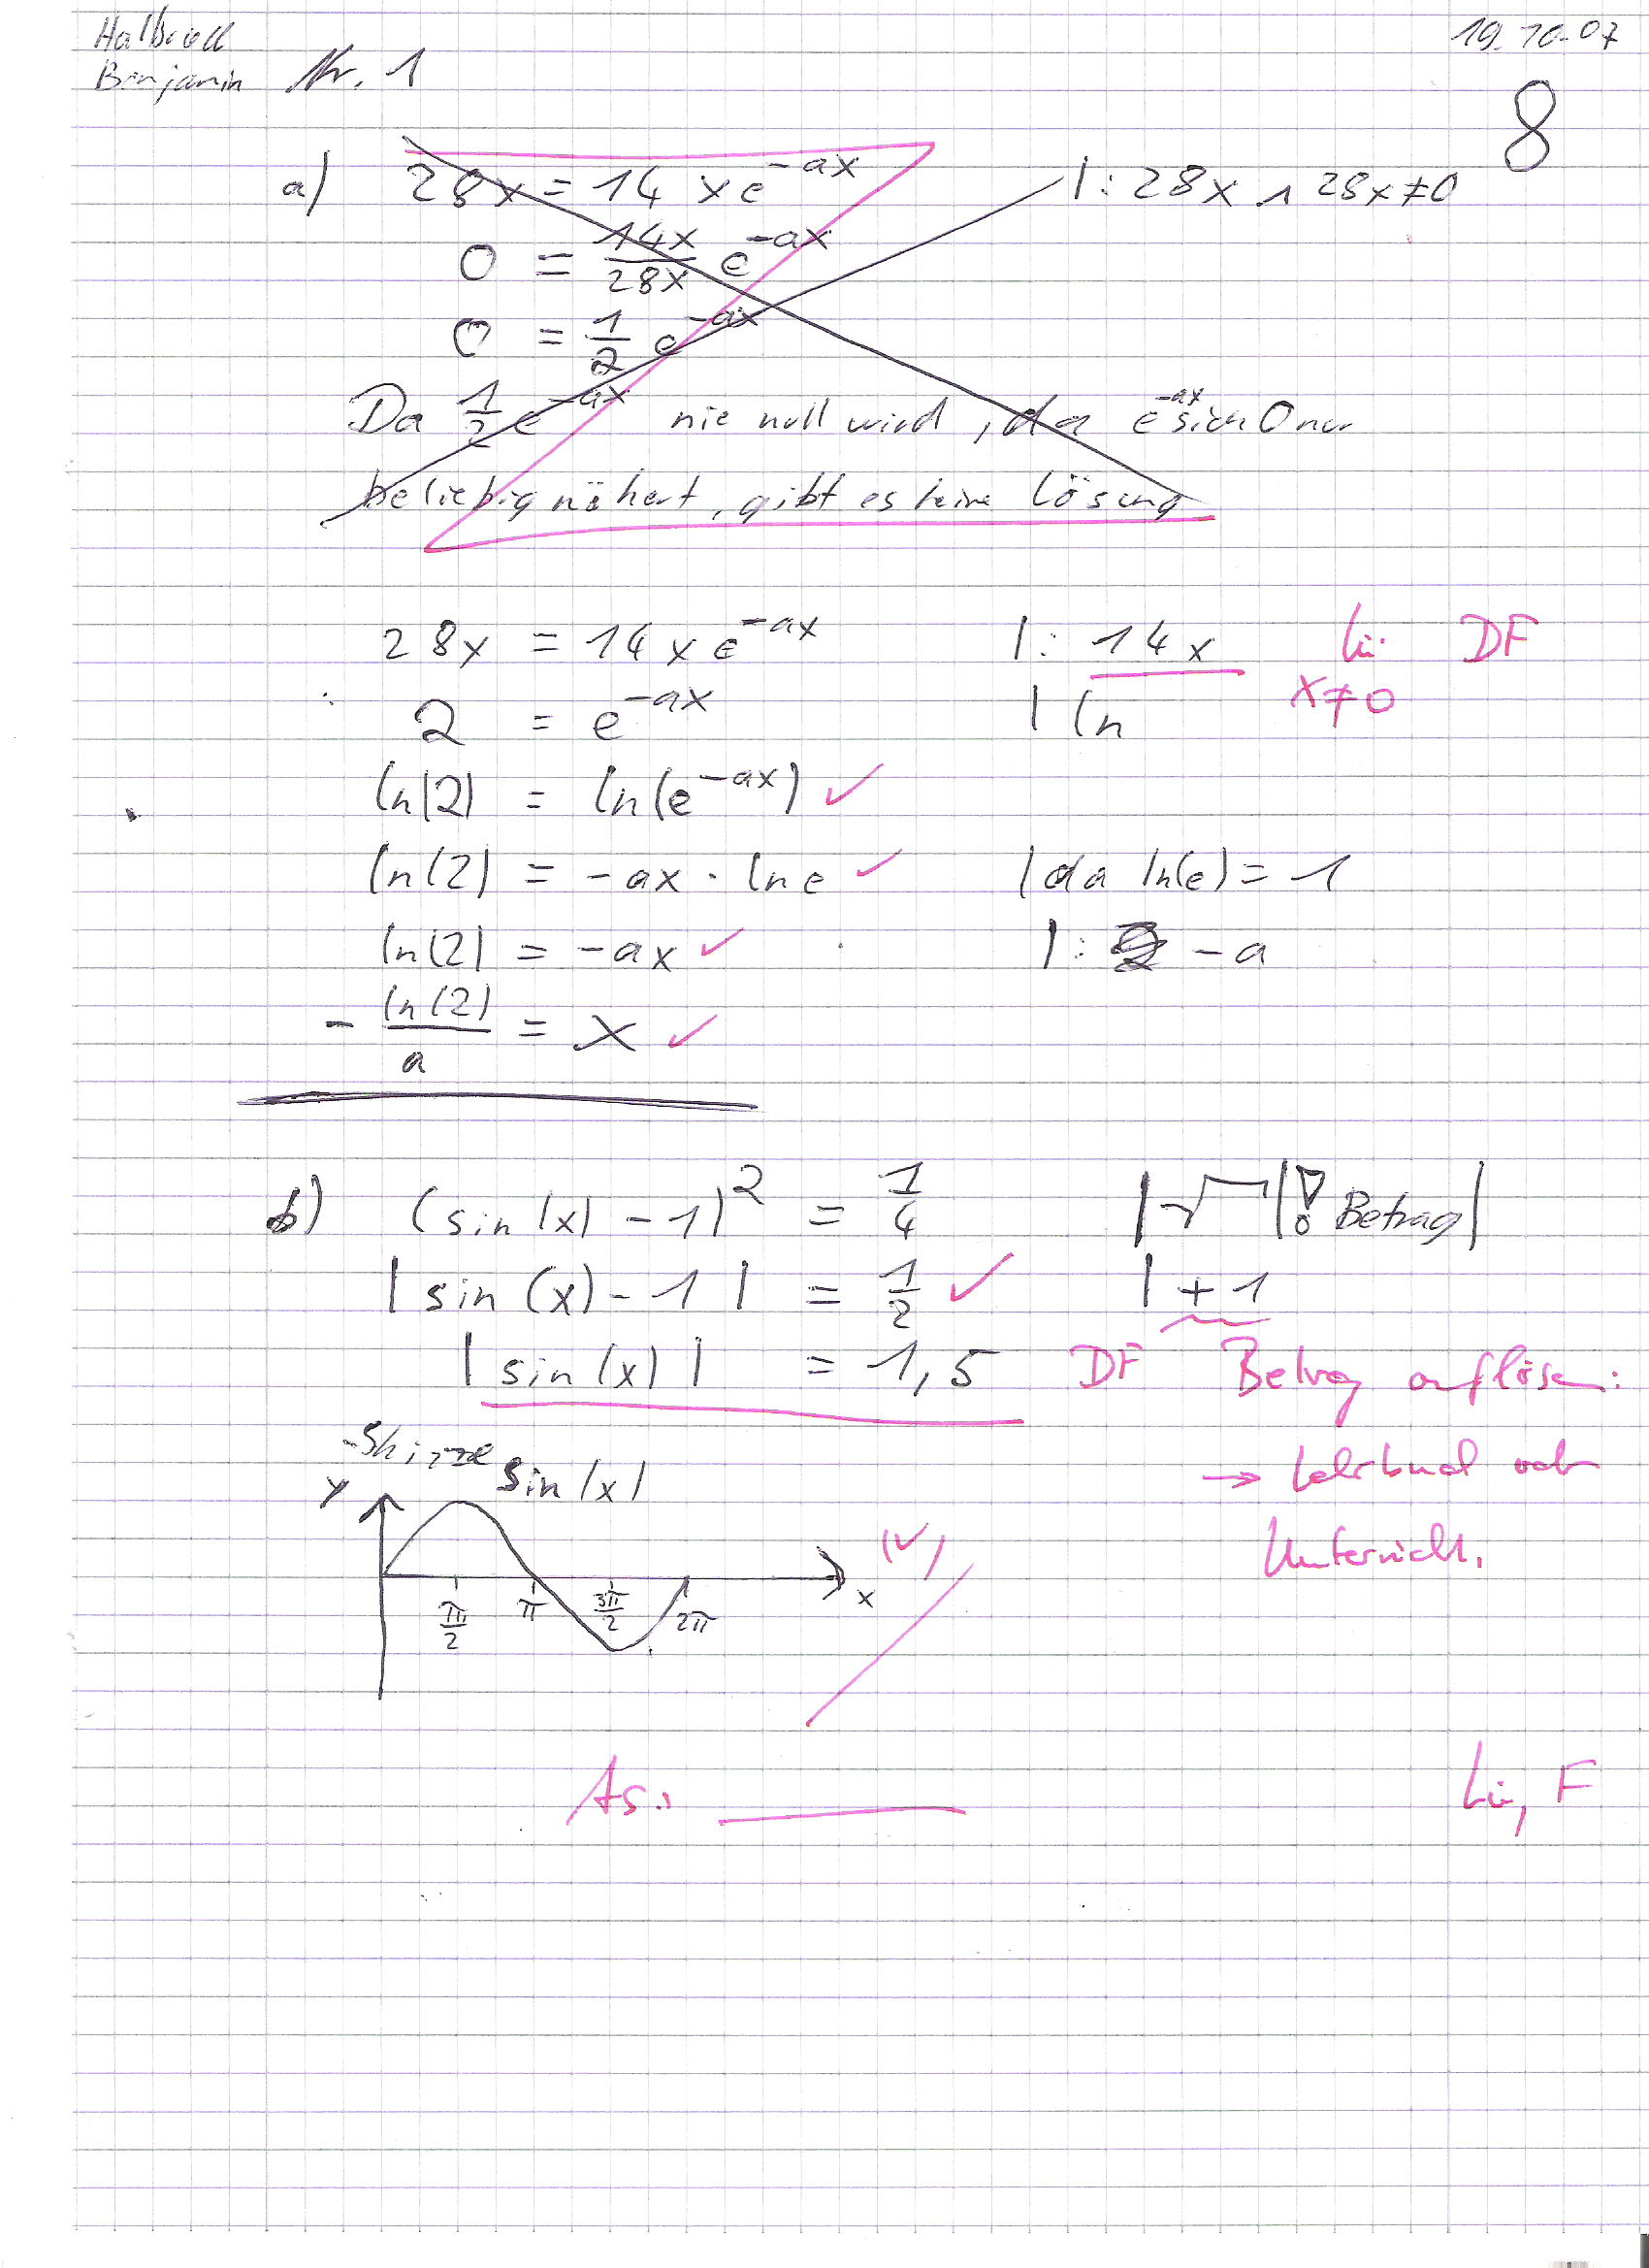 19.10.07
Benjamin Nr. 1
8
a) 28x = 14 x e^{-ax} |: 28x ∧ 28x ≠ 0
0 = \frac{14x}{28x} e^{-ax}
0 = \frac{1}{2} e^{-ax}
Da \frac{1}{2} e^{-ax} nie null wird, da e^{-ax} sich 0 nur
beliebig nähert, gibt es keine Lösung
28x = 14 x e^{-ax} |: 14x Lü DF
2 = e^{-ax} | ln x ≠ 0
ln(2) = ln(e^{-ax}) ✓
ln(2) = -ax · ln e ✓ | da ln(e) = 1
ln(2) = -ax ✓ |: -a
- \frac{ln(2)}{a} = x ✓
b) (sin(x) - 1)^2 = \frac{1}{4} | √ |! Betrag|
| sin(x) - 1 | = \frac{1}{2} ✓ | + 1
| sin(x) | = 1,5 DF Betrag auflösen:
-Skizze sin(x) → Lehrbuch oder
y Unterricht.
(✓)
\frac{π}{2} π \frac{3π}{2} 2π x
As.: Lü, F